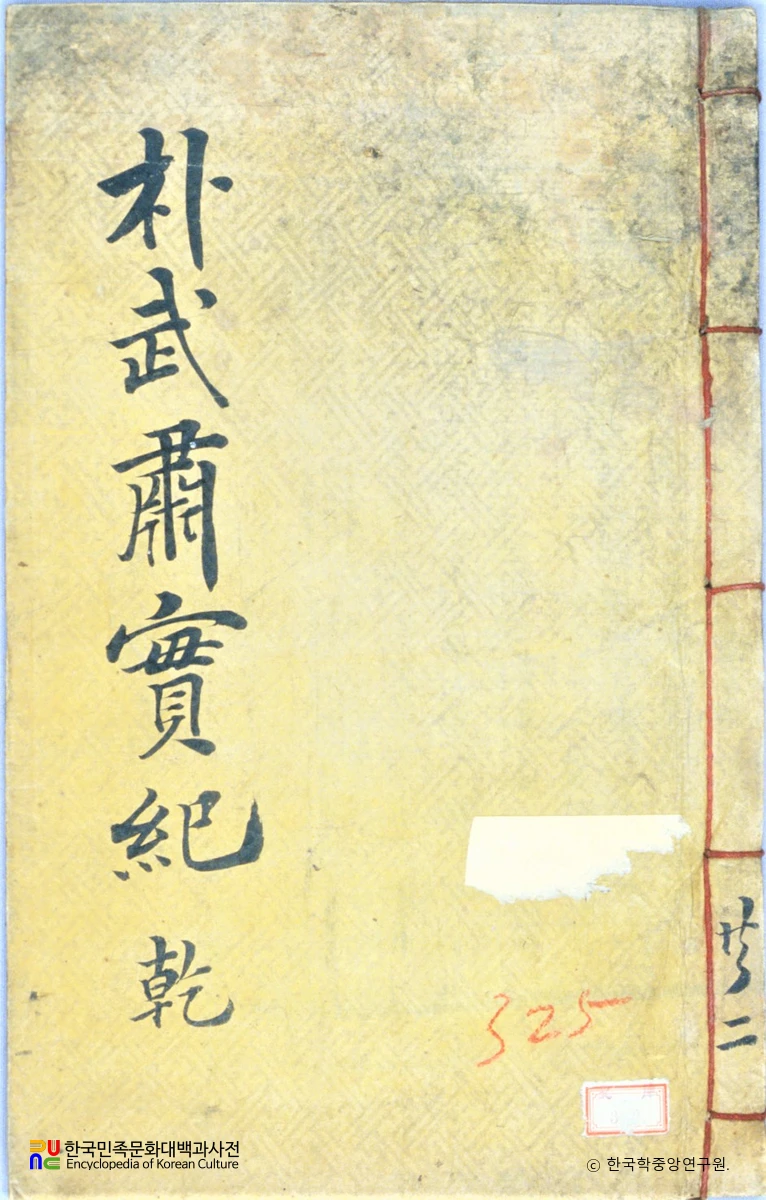 朴武肅實紀 乾
共二
325
한국민족문화대백과사전
Encyclopedia of Korean Culture
© 한국학중앙연구원.